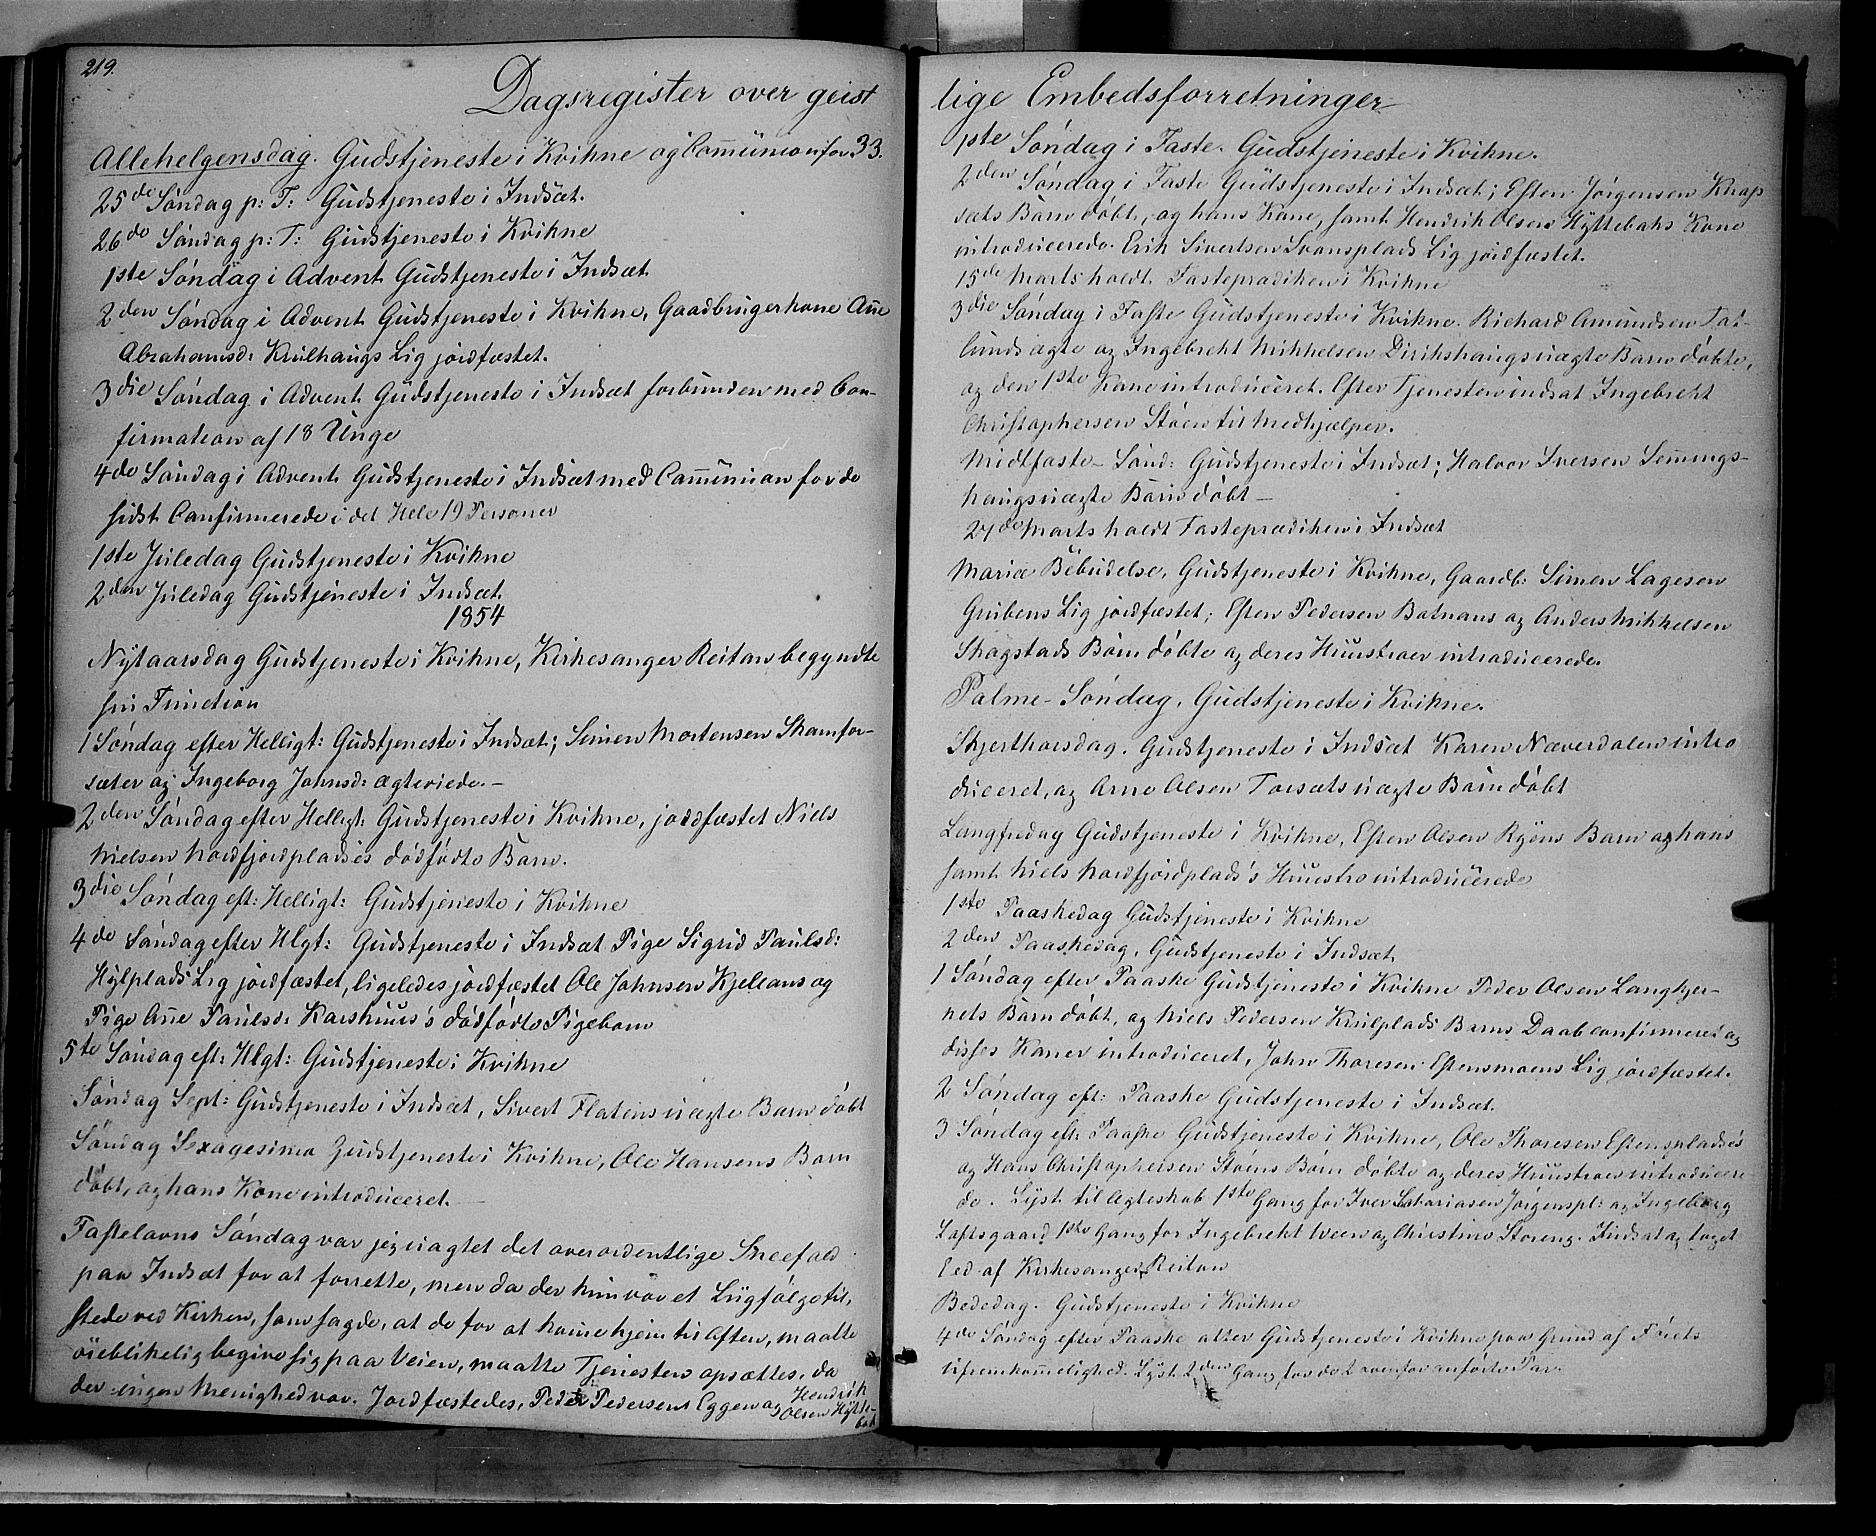 219.
Dagsregister over geist
Allehelgensdag. Gudstjeneste i Kvikne og Communion for 33.
25de Søndag p: T: Gudstjeneste i Indsæt.
26de Søndag p: T: Gudstjeneste i Kvikne
1ste Søndag i Advent Gudstjeneste i Indsæt
2den Søndag i Advent Gudstjeneste i Kvikne, Gaardbrugerkone Anne
Abrahamsd: Krulhaugs Lig jordfæstet.
3die Søndag i Advent Gudstjeneste i Indsæt forbunden med Con-
firmation af 18 Unge
4de Søndag i Advent Gudstjeneste i Indsæt med Communion for de
sidst Confirmerede i det Hele 19 Personer
1ste Juledag Gudstjeneste i Kvikne
2den Juledag Gudstjeneste i Indsæt.
1854
Nytaarsdag Gudstjeneste i Kvikne, Kirkesanger Reitan begyndte
sin Function
1 Søndag efter Helligt: Gudstjeneste i Indsæt; Simen Mortensen Skamfer-
sæter og Ingeborg Johnsd: ægteviede.-
2den Søndag efter Helligt: Gudstjeneste i Kvikne, jordfæstet Niels
Nielsen Nordfjordplads's dødfødte Barn.
3die Søndag eft: Helligt: Gudstjeneste i Kvikne
4de Søndag efter Hlgt: Gudstjeneste i Indsæt Pige Sigrid Paulsd:
Hylplads Lig jordfæstet, ligeledes jordfæstet Ole Johnsen Kjeleans og
Pige Anne Paulsd: Karshuus's dødfødte Pigebarn
5te Søndag eft: Hlgt: Gudstjeneste i Kvikne
Søndag Sept: Gudstjeneste i Indsæt, Sivert Flatens uægte Barn døbt
Søndag Sexagesima Gudstjeneste i Kvikne, Ole Hansens Barn
døbt, og hans Kone introduceret.
Fastelavns Søndag var jeg uagtet det overordentlige Sneefald
paa Indsæt for at forrette, men da der kun var et Liigfølge til
stede ved Kirken, som sagde, at de for at komme hjem til Aften, maatte
øieblikelig begive sig paa Veien, maatte Tjenesten opsættes, da
der ingen Menighed var. Jordfæstedes, Peder Pedersens Eggen og Hendrik
Olsen Hytte-
bak
lige Embedsforretninger
1ste Søndag i Faste. Gudstjeneste i Kvikne.
2den Søndag i Faste Gudstjeneste i Indsæt; Esten Jørgensen Knap
sæts Barn døbt, og hans Kone, samt Hendrik Olsens Hyttebaks Kone
introducerede. Erik Sivertsen Svensplads Lig jordfæstet.
15de Marts holdt Fasteprædiken i Kvikne
3die Søndag i Faste Gudstjeneste i Kvikne. Richard Amundsen Fai-
lunds ægte og Ingebrekt Mikkelsen Dirikshaugs uægte Barn døbte,
og den 1stes Kone introduceret. Efter Tjenesten indsat Ingebrekt
Christophersen Støen til Medhjælper.
Midtfaste-Sønd: Gudstjeneste i Indsæt; Halvor Iversen Semmings-
haugs uægte Barn døbt-
24de Marts holdt Fasteprædiken i Indsæt
Mariæ Bebudelse, Gudstjeneste i Kvikne, Gaardb: Simen Lagesen
Grubens Lig jordfæstet; Esten Pedersen Batnans og Anders Mikkelsen
Skagstads Børn døbte og deres Huustroer introducerede.
Palme-Søndag, Gudstjeneste i Kvikne.
Skjerthorsdag. Gudstjeneste i Indsæt Karen Næverdalen intro
duceret, og Arne Olsen Torsæts uægte Barn døbt
Langfredag Gudstjeneste i Kvikne, Esten Olsen Ryens Barn og hans
samt Niels Nordfjordplads's Huustro introducerede
1ste Paaskedag Gudstjeneste i Kvikne
2den Paaskedag, Gudstjeneste i Indsæt.
1 Søndag efter Paaske Gudstjeneste i Kvikne Peder Olsen Langkjer-
nets Barn døbt, og Niels Pedersen Krulplads Barns Daab confirmeret og
disses Koner introduceret, John Thoresen Estensmoens Lig jordfæstet.
2 Søndag eft: Paaske Gudstjeneste i Indsæt.
3 Søndag eft: Paaske Gudstjeneste i Kvikne, Ole Thoresen Estensplads's
og Hans Christophersen Støens Børn døbte og deres Huustroer introducere
de. Lyst til Ægteskab 1ste Gang for Iver Zakariasen Jørgenspl: og Ingeborg
Loftsgaard 1ste Gang for Ingebrekt Weera og Christine Storeng. Indsat og toget
Eed af Kirkesanger Reitan
Bededag. Gudstjeneste i Kvikne
4de Søndag efter Paaske atter Gudstjeneste i Kvikne paa Grund af Føiets
ufremkommelighed. Lyst 2den Gang for de 2 ovenfor anførte Par.